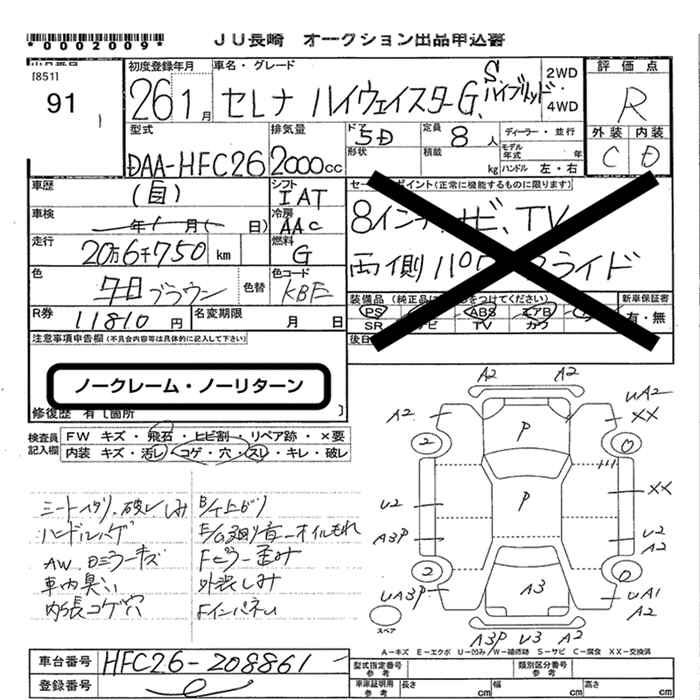 *0002009* JU長崎 オークション出品申込書
[851]
91
初度登録年月 車名・グレード 評価点
26 1月 セレナ ハイウェイスターG Sハイブリッド 2WD・4WD R
型式 排気量 ドア 定員 ディーラー・並行 外装 内装
DAA-HFC26 2000cc 5D 8人 モデル年式 年 C D
形状 積載 kg ハンドル 左・右
車歴 (自) シフト IAT セールスポイント(正常に機能するものに限ります)
車検 年 月( 日) 冷房 AAC 8インチナビ、TV
走行 20万6千750 km 燃料 G 両側パワースライド
色 ブラウン 色替 カラーコード KBE
装備品 (純正品は○をつけてください) 新車保証書
PS ABS エアB 有・無
SR ナビ TV カワ
R券 11810円 名変期限 月 日
後日
注意事項申告欄(不具合内容等は具体的に記入して下さい)
ノークレーム・ノーリターン
修復歴 有 [箇所 ]
検査員記入欄 FW キズ・飛石・ヒビ割・リペア跡・×要
内装 キズ・汚レ・コゲ・穴・スレ・キレ・破レ
シートスリ、破レしみ
ハンドルハゲ
AW、Dミラーキズ
車内臭い
内張コゲ穴
B/上がり
E/G廻り音-オイルもれ
Fピラー歪み
外装しみ
Fインパネい
A2 A2
A2 P UA2 XX
2 0
U2 P XX
A3P U2 A2
2 2
UA3P A3 UA1 A2
A3P U3 A2
スペア
A-キズ E-エクボ U-凹み W-補修跡 S-サビ C-腐食 XX-交換済
車台番号 HFC26-208861
登録番号
型式指定番号 参考 類別区分番号 参考
車庫証明用 参考 長さ cm 幅 cm 高さ cm